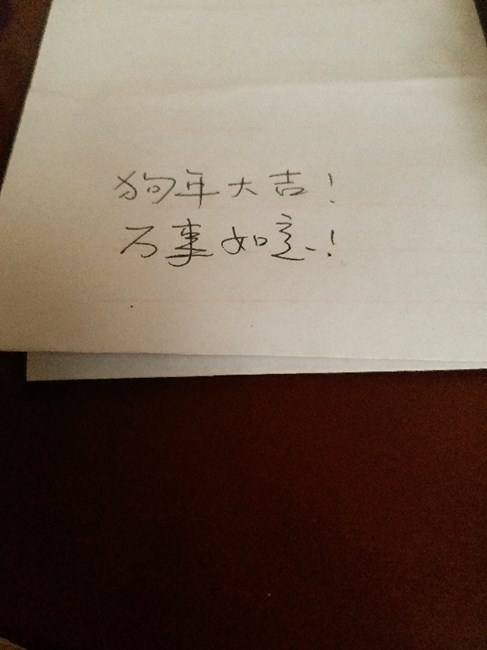 狗年大吉！
万事如意！